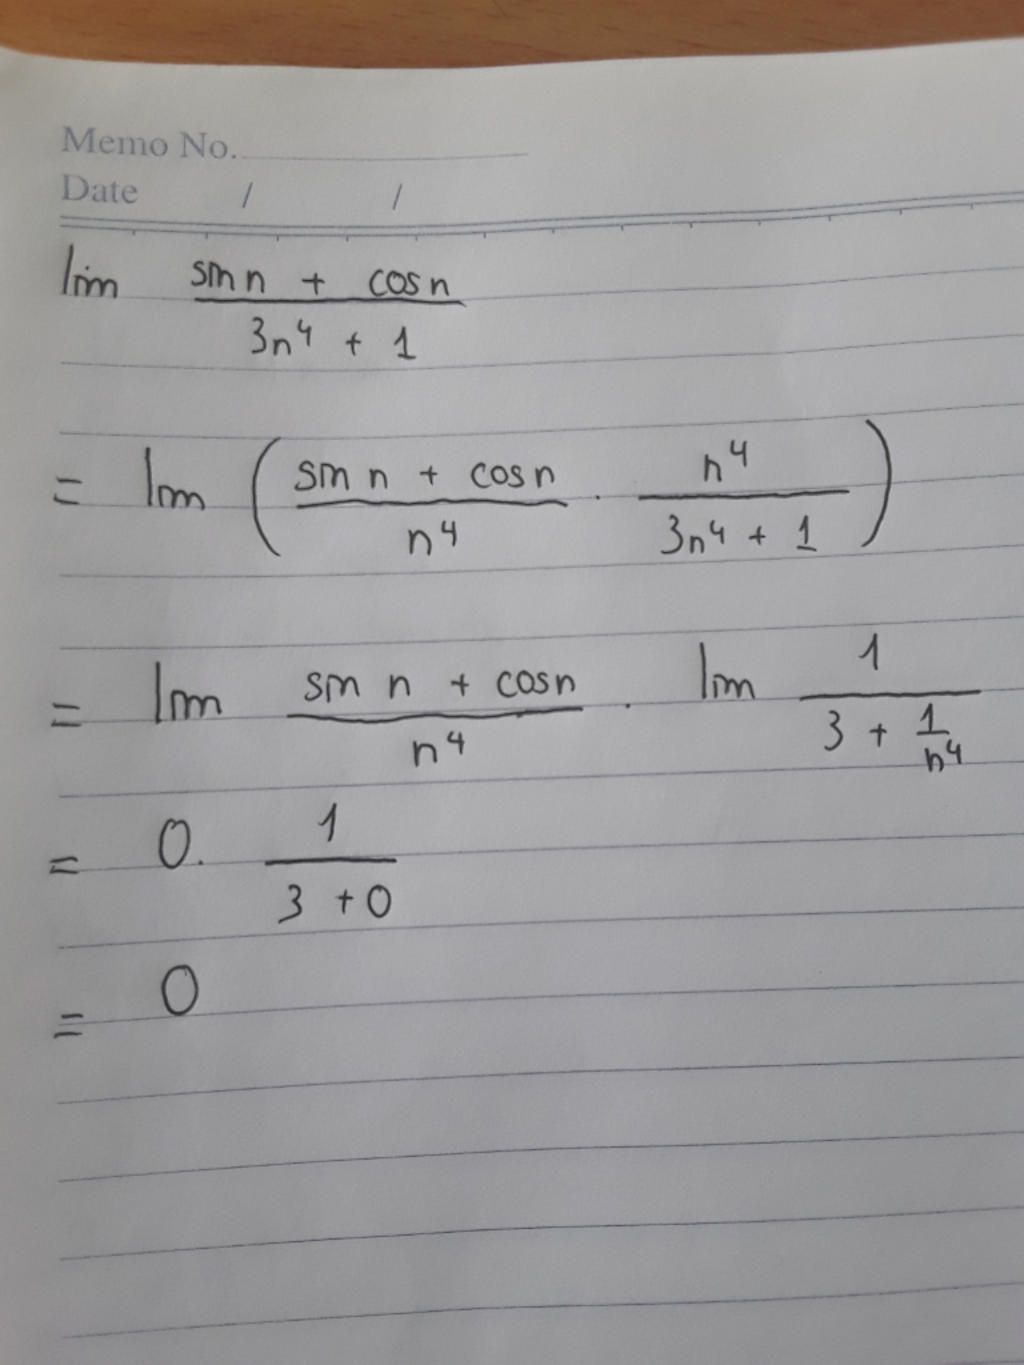 Memo No.
Date / /
lim (sin n + cos n)/(3n⁴ + 1)
= lim ((sin n + cos n)/n⁴ · n⁴/(3n⁴ + 1))
= lim (sin n + cos n)/n⁴ · lim 1/(3 + 1/n⁴)
= 0 · 1/(3 + 0)
= 0